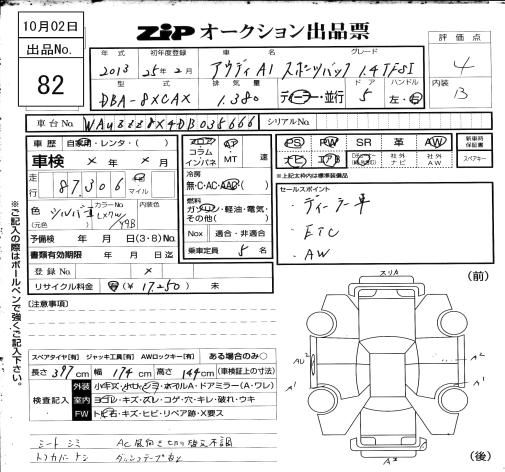 10月02日
ZiP オークション出品票
出品No.
82
評価点
4
内装
B
年式 初年度登録 車名 グレード
2013 25年2月 アウディA1 スポーツバック 1.4 TFSI
型式 排気量 ドア ハンドル
DBA-8XCAX 1.380 ディーラー・並行 5 左・右
車台No. WAUZZZ8X4DB035666 シリアルNo.
車歴 自家用・レンタ・( )
車検 × 年 × 月
走行 87,306 マイル
色 シルバー カラーNo. 内装色
(元色) LX7W/Y9B
予備検 年 月 日(3・8)No.
書類有効期限 年 月 日迄
登録No. ×
リサイクル料金 (¥17250) 未
フロア AT
コラム
インパネ MT 速
冷房
無・C・AC・AAC( )
燃料
ガソリン・軽油・電気・
その他( )
Nox 適合・非適合
乗車定員 5 名
PS PW SR 革 AW
ナビ エアB 社外ナビ 社外AW
新車時保証書
スペアキー
※上記太枠内は標準装備品
セールスポイント
・ディーラー車
・ETC
・AW
※ご記入の際はボールペンで強くご記入下さい。
[注意事項]
スペアタイヤ[有] ジャッキ工具[有] AWロックキー[有] ある場合のみ○
長さ 397 cm 幅 174 cm 高さ 144 cm (車検証上の寸法)
検査記入
外装 小キズ・小ヘコ・シミ・ホイルA・ドアミラー(A・ワレ)
室内 ヨゴレ・キズ・スレ・コゲ・穴・キレ・破れ・ウキ
FW トビ石・キズ・ヒビ・リペア跡・X要ス
シートシミ
(前)
スリカ
A2
A1
A1
A2
(後)